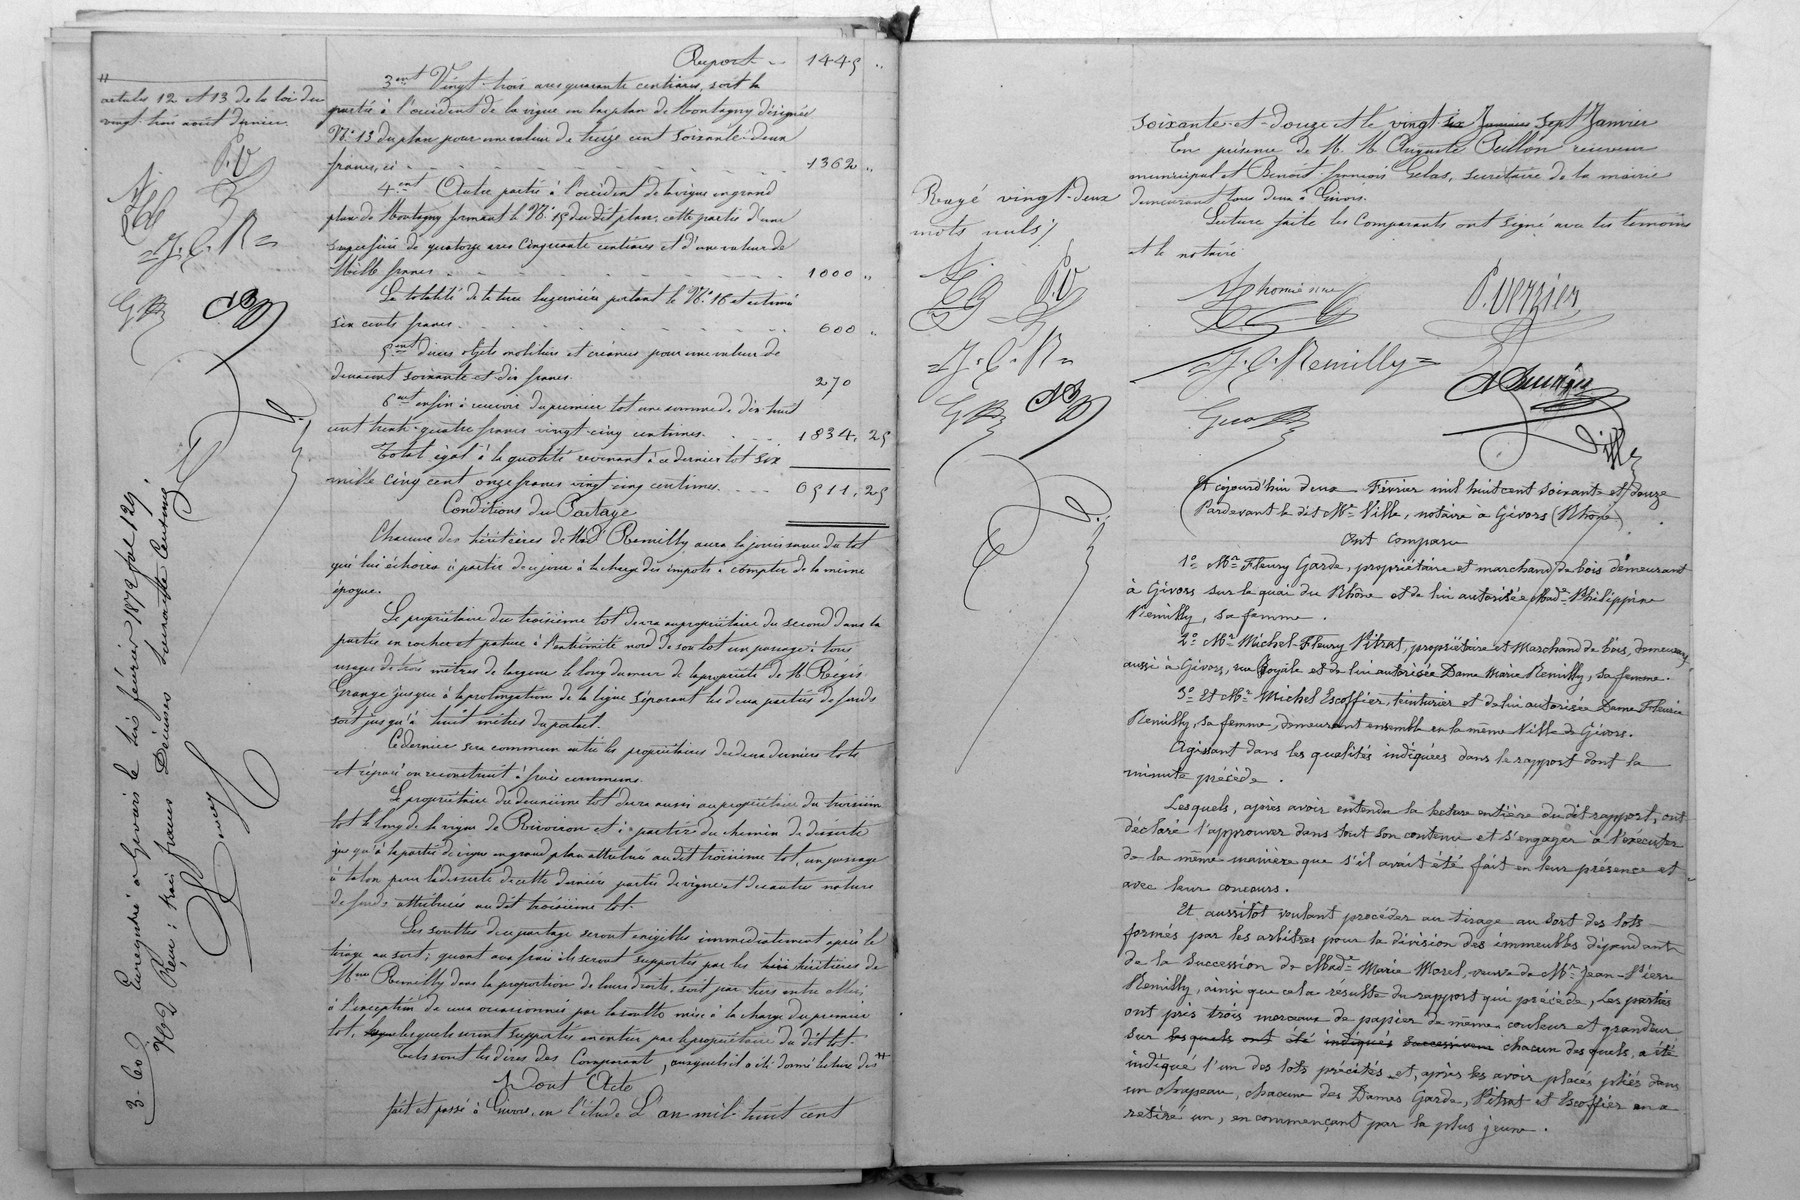 "
articles 12 et 13 de la loi du
vingt trois août dernier.
P.V
=J.C.R=
3. Co) Enregistré à Givors le trois février 1872 fol 129,
Reçu : trois francs Décimes soixante Centimes
Report 1445 "
3ent Vingt-trois ares quarante centiares, soit la
partie à l'occident de la vigne en grand plan de Montagny désignée
No 13 du plan pour une valeur de treize cent soixante-deux
francs, ci 1362 "
4ent Autre partie à l'occident de la vigne en grand
plan de Montagny formant le No 15 du dit plan, cette partie d'une
superficie de quatorze ares cinquante centiares et d'une valeur de
Mille francs 1000 "
La totalité de la terre luzernière portant le No 16 et estimée
six cents francs. 600 "
5ent divers objets mobiliers et créances pour une valeur de
deux cent soixante et dix francs. 270
6ent enfin à recevoir du premier lot une somme de dix-huit
cent trente-quatre francs vingt-cinq centimes. 1834, 25
Total égal à la quotité revenant à ce dernier lot six
mille cinq cent onze francs vingt cinq centimes. 6511, 25
Conditions du Partage
Chacune des héritières de Mad. Remilly aura la jouissance du lot
qui lui échoira à partir de ce jour à la charge des impôts à compter de la même
époque.
Le propriétaire du troisième lot devra au propriétaire du second dans la
partie en rocher et pature à l'extrémité nord de son lot un passage à tous
usages de trois mètres de largeur le long du mur de la propriété de M. Régis
Grange jusque à la prolongation de la ligne séparant les deux parties de fonds
soit jusqu'à huit mètres du portail.
Ce dernier sera commun entre les propriétaires des deux derniers lots
et réparé ou reconstruit à frais communs.
Le propriétaire du deuxième lot devra aussi au propriétaire du troisième
lot le long de la vigne de Rivoiron et à partir du chemin de desserte
jusqu'à la partie de vigne en grand plan attribuée au dit troisième lot, un passage
à talon pour la desserte de cette dernière partie de vigne et des autres nature
de fonds attribuées au dit troisième lot.
Les soultes du partage seront exigibles immédiatement après le
tirage au sort ; quant aux frais ils seront supportés par les héritières de
Mme Remilly dans la proportion de leurs droits, soit par tiers entre elles,
à l'exception de ceux occasionnés par la soulte mise à la charge du premier
lot, lesquels seront supportés en entier par le propriétaire du dit lot.
Tels sont les dires des Comparants, auxquels il a été donné lecture des "
Dont Acte
fait et passé à Givors, en l'étude L'an mil huit cent
Rayé vingt-deux
mots nuls
P.V
=J.C.R=
soixante-et-douze et le vingt six Janvier sept Janvier
En présence de M. M. Auguste Pullon receveur
municipal et Benoit-françois Gelas, secrétaire de la mairie
demeurant tous deux à Givors.
Lecture faite les Comparants ont signé avec les témoins
et le notaire
P. Verzier
J. C. Remilly=
Ville
Et aujourd'hui deux Février mil huit cent soixante-et-douze
Pardevant le dit Me Ville, notaire à Givors (Rhône)
Ont comparu
1o Mr Fleury Garde, propriétaire et marchand de bois demeurant
à Givors sur le quai du Rhône et de lui autorisée Made Philippine
Remilly, sa femme.
2o Mr Michel-Fleury Pitrat, propriétaire et Marchand de bois, demeurant
aussi à Givors, rue Royale et de lui autorisée Dame Marie Remilly, sa femme.
3o Et Mr Michel Escoffier, teinturier et de lui autorisée Dame Fleurie
Remilly, sa femme, demeurant ensemble en la même Ville de Givors.
Agissant dans les qualités indiquées dans le rapport dont la
minute précède.
Lesquels, après avoir entendu la lecture entière du dit rapport, ont
déclaré l'approuver dans tout son contenu et s'engager à l'exécuter
de la même manière que s'il avait été fait en leur présence et
avec leur concours.
Et aussitot voulant procéder au tirage au sort des lots
formés par les arbitres pour la division des immeubles dépendant
de la succession de Made Marie Morel, veuve de Mr Jean-Pierre
Remilly, ainsi que cela résulte du rapport qui précède, Les parties
ont pris trois morceaux de papier de même couleur et grandeur
sur lesquels ont été indiqués successivem chacun desquels a été
indiqué l'un des lots précités et, après les avoir placés pliés dans
un chapeau, chacune des Dames Garde, Pitrat et Escoffier en a
retiré un, en commençant par la plus jeune.